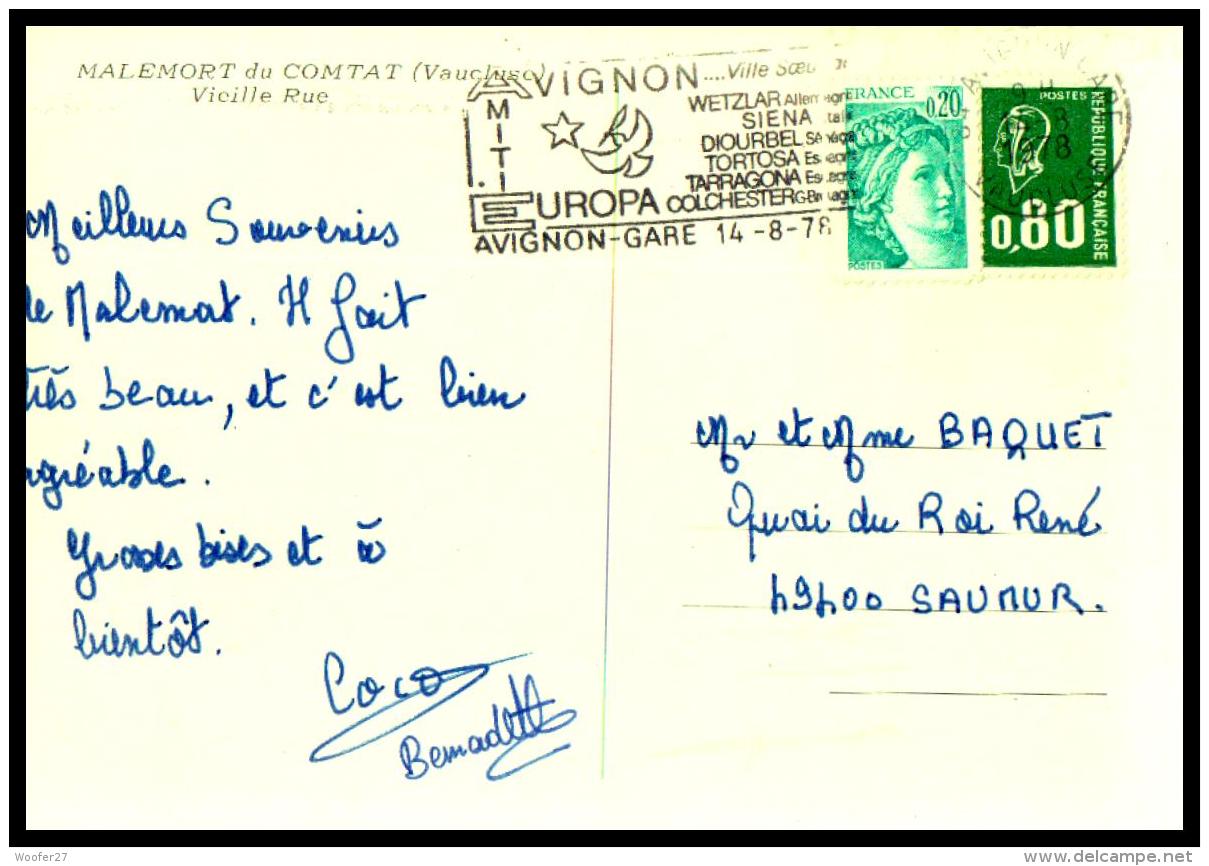 MALEMORT du COMTAT (Vaucluse)
Vieille Rue
AVIGNON....Ville Sœu
AMITIE
WETZLAR Allemagne
SIENA Italie
DIOURBEL Sénégal
TORTOSA Espagne
TARRAGONA Espagne
COLCHESTER G-Bretagne
EUROPA
AVIGNON-GARE 14-8-78
FRANCE
0,20
POSTES
POSTES
RÉPUBLIQUE FRANÇAISE
0,80
1978
VAUCLUSE
Meilleurs Souvenirs
de Malemort. Il fait
très beau, et c'est bien
agréable.
Grosses bises et à
bientôt.
Coco
Bernadette
Mr et Mme BAQUET
Quai du Roi René
49400 SAUMUR.
Woofer27
http://www.delcampe.net